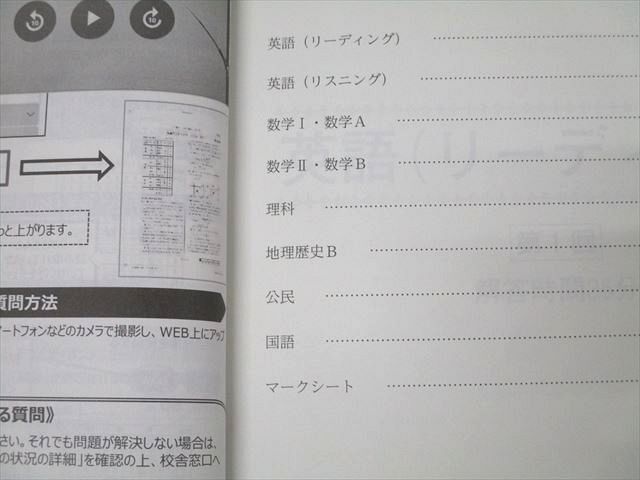 10
10
っと上がります。
質問方法
ートフォンなどのカメラで撮影し、WEB上にアップ
る質問》
さい。それでも問題が解決しない場合は、
の状況の詳細」を確認の上、校舎窓口へ
英語（リーディング） ……………………
英語（リスニング） ……………………
数学Ⅰ・数学A ……………………
数学Ⅱ・数学B ……………………
理科 ……………………
地理歴史B ……………………
公民 ……………………
国語 ……………………
マークシート ……………………